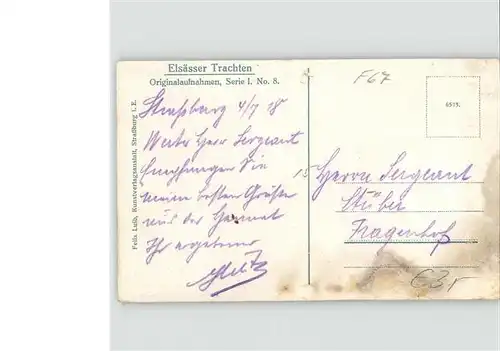 Elsässer Trachten
Originalaufnahmen, Serie I. No. 8.
F67
6515.
Straßburg 4/7 18
Werter Herr Sergeant
Empfangen Sie
meine besten Grüße
aus der Heimat
Ihr ergebener
Herrn Sergeant
Stüber
Fragenhof
€3,-
Felix Luib, Kunstverlagsanstalt, Straßburg i. E.